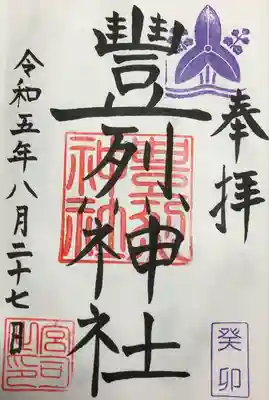 奉拝
豊烈神社
豊烈神社
令和五年八月二十七日
癸卯